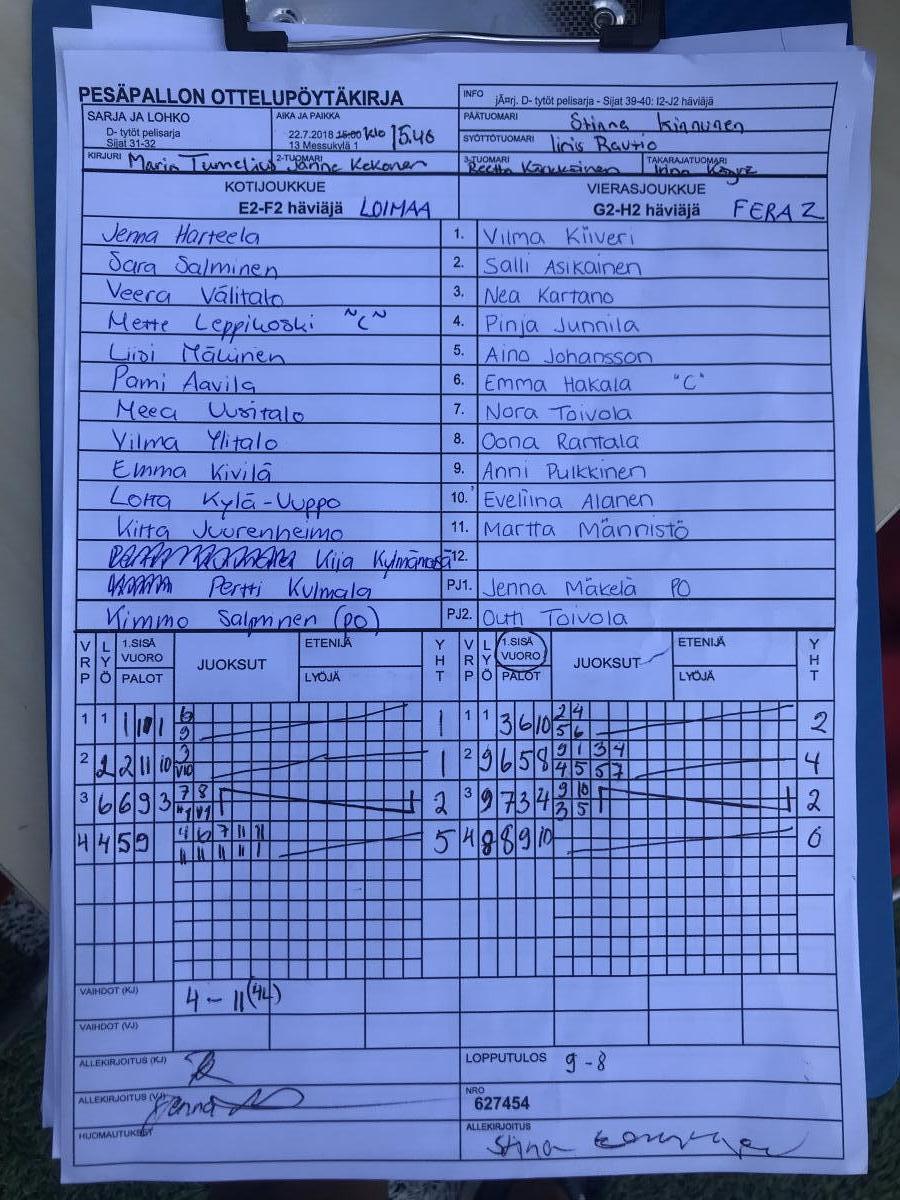 PESÄPALLON OTTELUPÖYTÄKIRJA
INFO jÃ¤rj. D- tytöt pelisarja - Sijat 39-40: I2-J2 häviäjä
SARJA JA LOHKO
D- tytöt pelisarja
Sijat 31-32
AIKA JA PAIKKA
22.7.2018 15:00 klo 15.46
13 Messukylä 1
PÄÄTUOMARI Stinna Kinnunen
SYÖTTÖTUOMARI Iiris Rautio
KIRJURI Maria Tunnelius
2-TUOMARI Janne Kekonen
3-TUOMARI Reetta
TAKARAJATUOMARI
KOTIJOUKKUE
E2-F2 häviäjä LOIMAA
VIERASJOUKKUE
G2-H2 häviäjä FERA 2
Jenna Harteela 1. Vilma Kiiveri
Sara Salminen 2. Salli Asikainen
Veera Välitalo 3. Nea Kartano
Mette Leppikoski "C" 4. Pinja Junnila
Liisi Mäkinen 5. Aino Johansson
Pami Aavila 6. Emma Hakala "C"
Meea Uusitalo 7. Nora Toivola
Vilma Ylitalo 8. Oona Rantala
Emma Kivilä 9. Anni Pulkkinen
Lotta Kylä-Uuppo 10. Eveliina Alanen
Kitta Juurenheimo 11. Martta Männistö
Kija 12.
Pertti Kulmala PJ1. Jenna Mäkelä PO
Kimmo Salminen (PO) PJ2. Outi Toivola
VRP LYÖ 1.SISÄ VUORO PALOT JUOKSUT ETENIJÄ LYÖJÄ YHT VRP LYÖ 1.SISÄ VUORO PALOT JUOKSUT ETENIJÄ LYÖJÄ YHT
1 1 6 1 1 1 3 6 10 2 4 2
9 5 6
2 2 2 11 10 3 1 2 9 6 5 8 9 1 3 4 4
V10 4 5 5 7
3 6 6 9 3 7 8 2 3 9 7 3 4 9 10 2
3 5
4 4 5 9 4 6 7 11 11 5 4 8 8 9 10 0
11 11 11 11 1
VAIHDOT (KJ) 4 - 11 (4L)
VAIHDOT (VJ)
ALLEKIRJOITUS (KJ)
LOPPUTULOS 9 - 8
ALLEKIRJOITUS (VJ) Jenna
NRO
627454
HUOMAUTUKSET
ALLEKIRJOITUS Stina